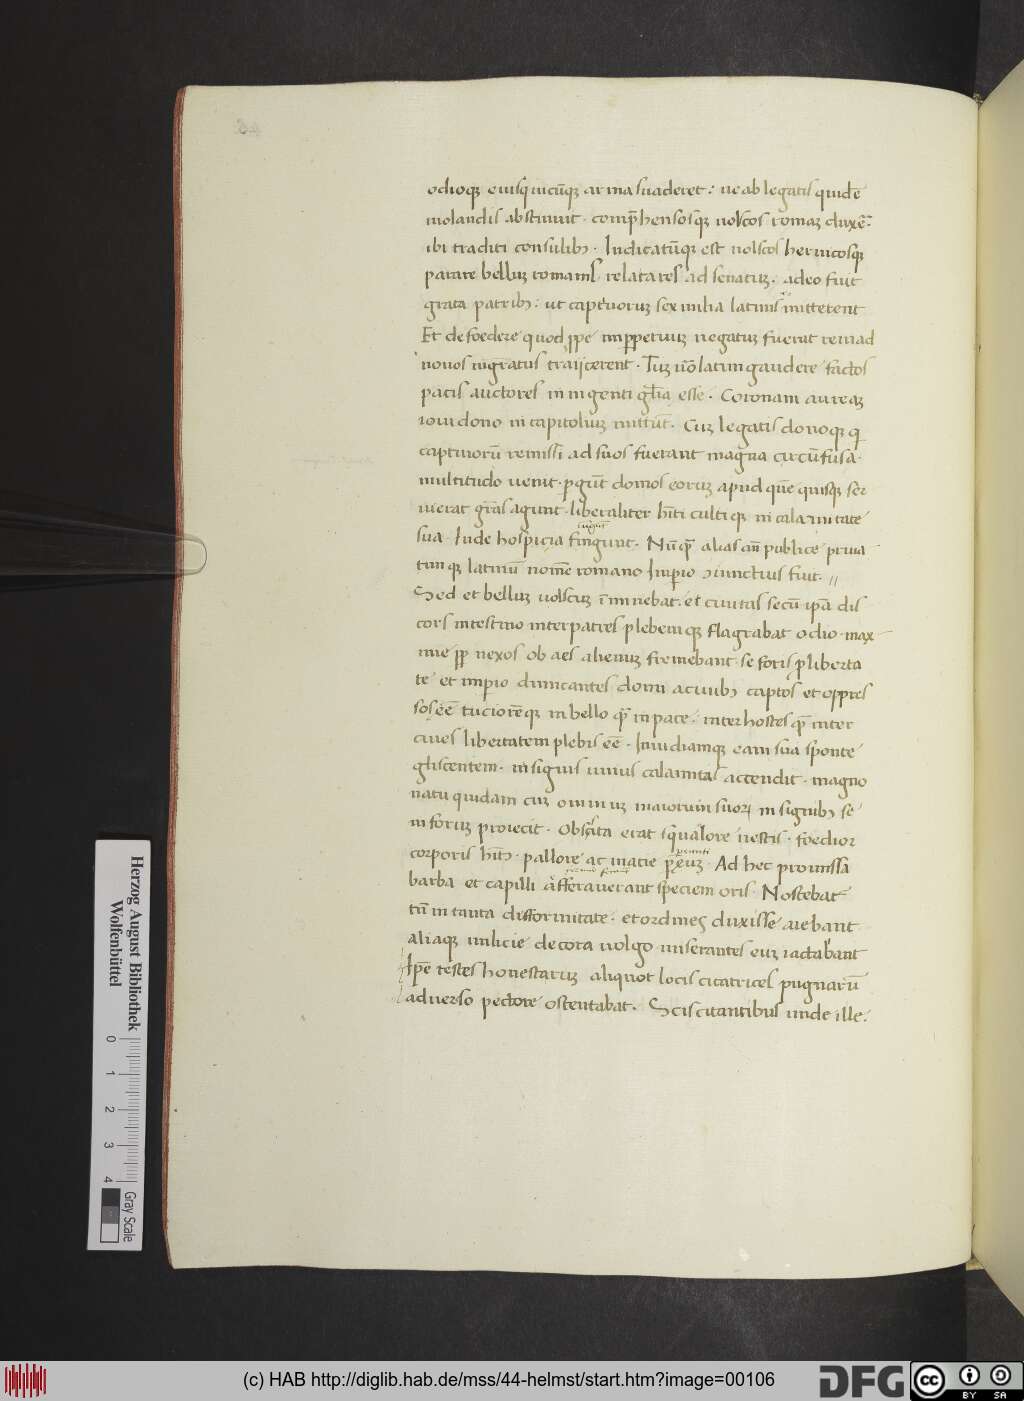 odioq; eiusq̨ uicūq; arma suaderet: ne ab legatis quidē
uiolandis abstinuit. comp̄hensosq; uolscos romaȝ duxē.
ibi traditi consulib;. Indicatūq; est uolscos hernicosq;
parare belluȝ romanis. relata res ad senatuȝ. adeo fuit
grata patrib;: ut captiuoruȝ sex milia latinis mitterent
Et de foedere quod ꝓpe inꝑpetuuȝ negatuȝ fuerat rem ad
nouos mḡratus traijcerent. Tuȝ uō latini gaudere factos
pacis auctores in ingenti gl̄ia esse. Coronam aureaȝ
ioui dono in capitoliuȝ mittūt. Cuȝ legatis donoq; q
captiuorū remissi ad suos fuerant magna circūfusa.
multitudo uenit. ꝑgūt domos eoruȝ apud quē quisq; ser
uierat gr̄as agunt. liberaliter hīti cultiq; in calamitate
sua. Inde hospicia fingunt. Nūq̄ alias an̄ publice priua
timq; latinū nomē romano Imperio ɔiunctius fuit. //
Sed et belluȝ uolscuȝ īminebat. et ciuitas secū ipā dis
cors intestino inter patres plebemq; flagrabat odio. max
ime ꝓp nexos ob aes alienuȝ fremebant. se foris ꝓ liberta
te et imperio dimicantes domi a ciuib; captos et oppres
sos eē tuciorēq; in bello q̄ in pace. inter hostes q̄ inter
ciues libertatem plebis eē. Inuidiamq; eam sua sponte
gliscentem. insignis unius calamitas accendit. magno
natu quidam cuȝ omniuȝ maiorum suorꝝ insignib; se
in foruȝ proiecit. Obsita erat squalore uestis. foedior
corporis hīt;. pallore ac macie p̄ēuȝ. Ad hec promissa
barba et capilli afferauerant speciem oris. Noscebat
tn̄ in tanta difformitate. et ordines duxisse aiebant
aliaq; milicie decora uolgo miserantes euȝ iactabant
Ip̄e testes honestaruȝ aliquot locis cicatrices pugnarū
aduerso pectore ostentabat. Sciscitantibus unde ille.
Herzog August Bibliothek
Wolfenbüttel
0 1 2 3 4
Gray Scale
(c) HAB http://diglib.hab.de/mss/44-helmst/start.htm?image=00106
DFG
cc BY SA